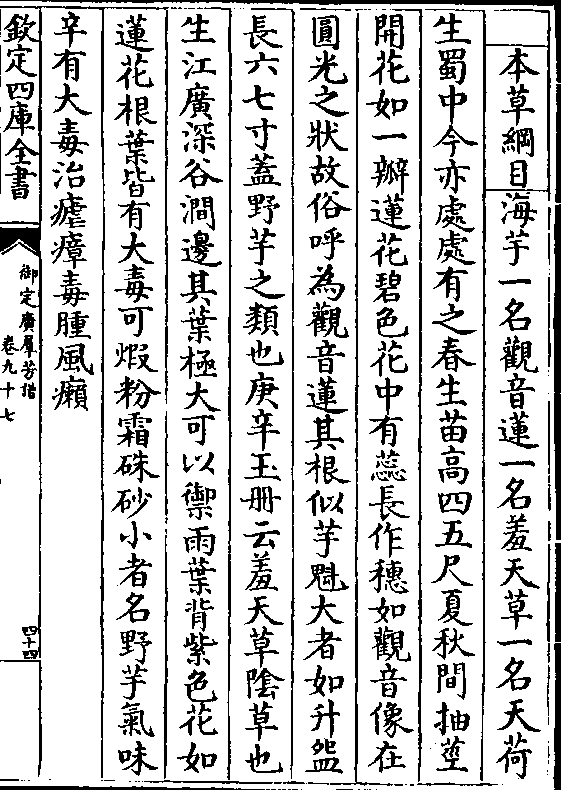 本草綱目海芋一名觀音蓮一名羞天草一名天荷
生蜀中今亦處處有之春生苗高四五尺夏秋間抽莖
開花如一瓣蓮花碧色花中有蕊長作穗如觀音像在
圓光之狀故俗呼為觀音蓮其根似芋魁大者如升盌
長六七寸蓋野芋之類也庚辛玉冊云羞天草隂草也
生江廣深谷澗邊其葉極大可以禦雨葉背紫色花如
蓮花根葉皆有大毒可煆粉霜硃砂小者名野芋氣味
辛有大毒治瘧瘴毒腫風癩
欽定四庫全書
御定廣羣芳譜
卷九十七
四十四